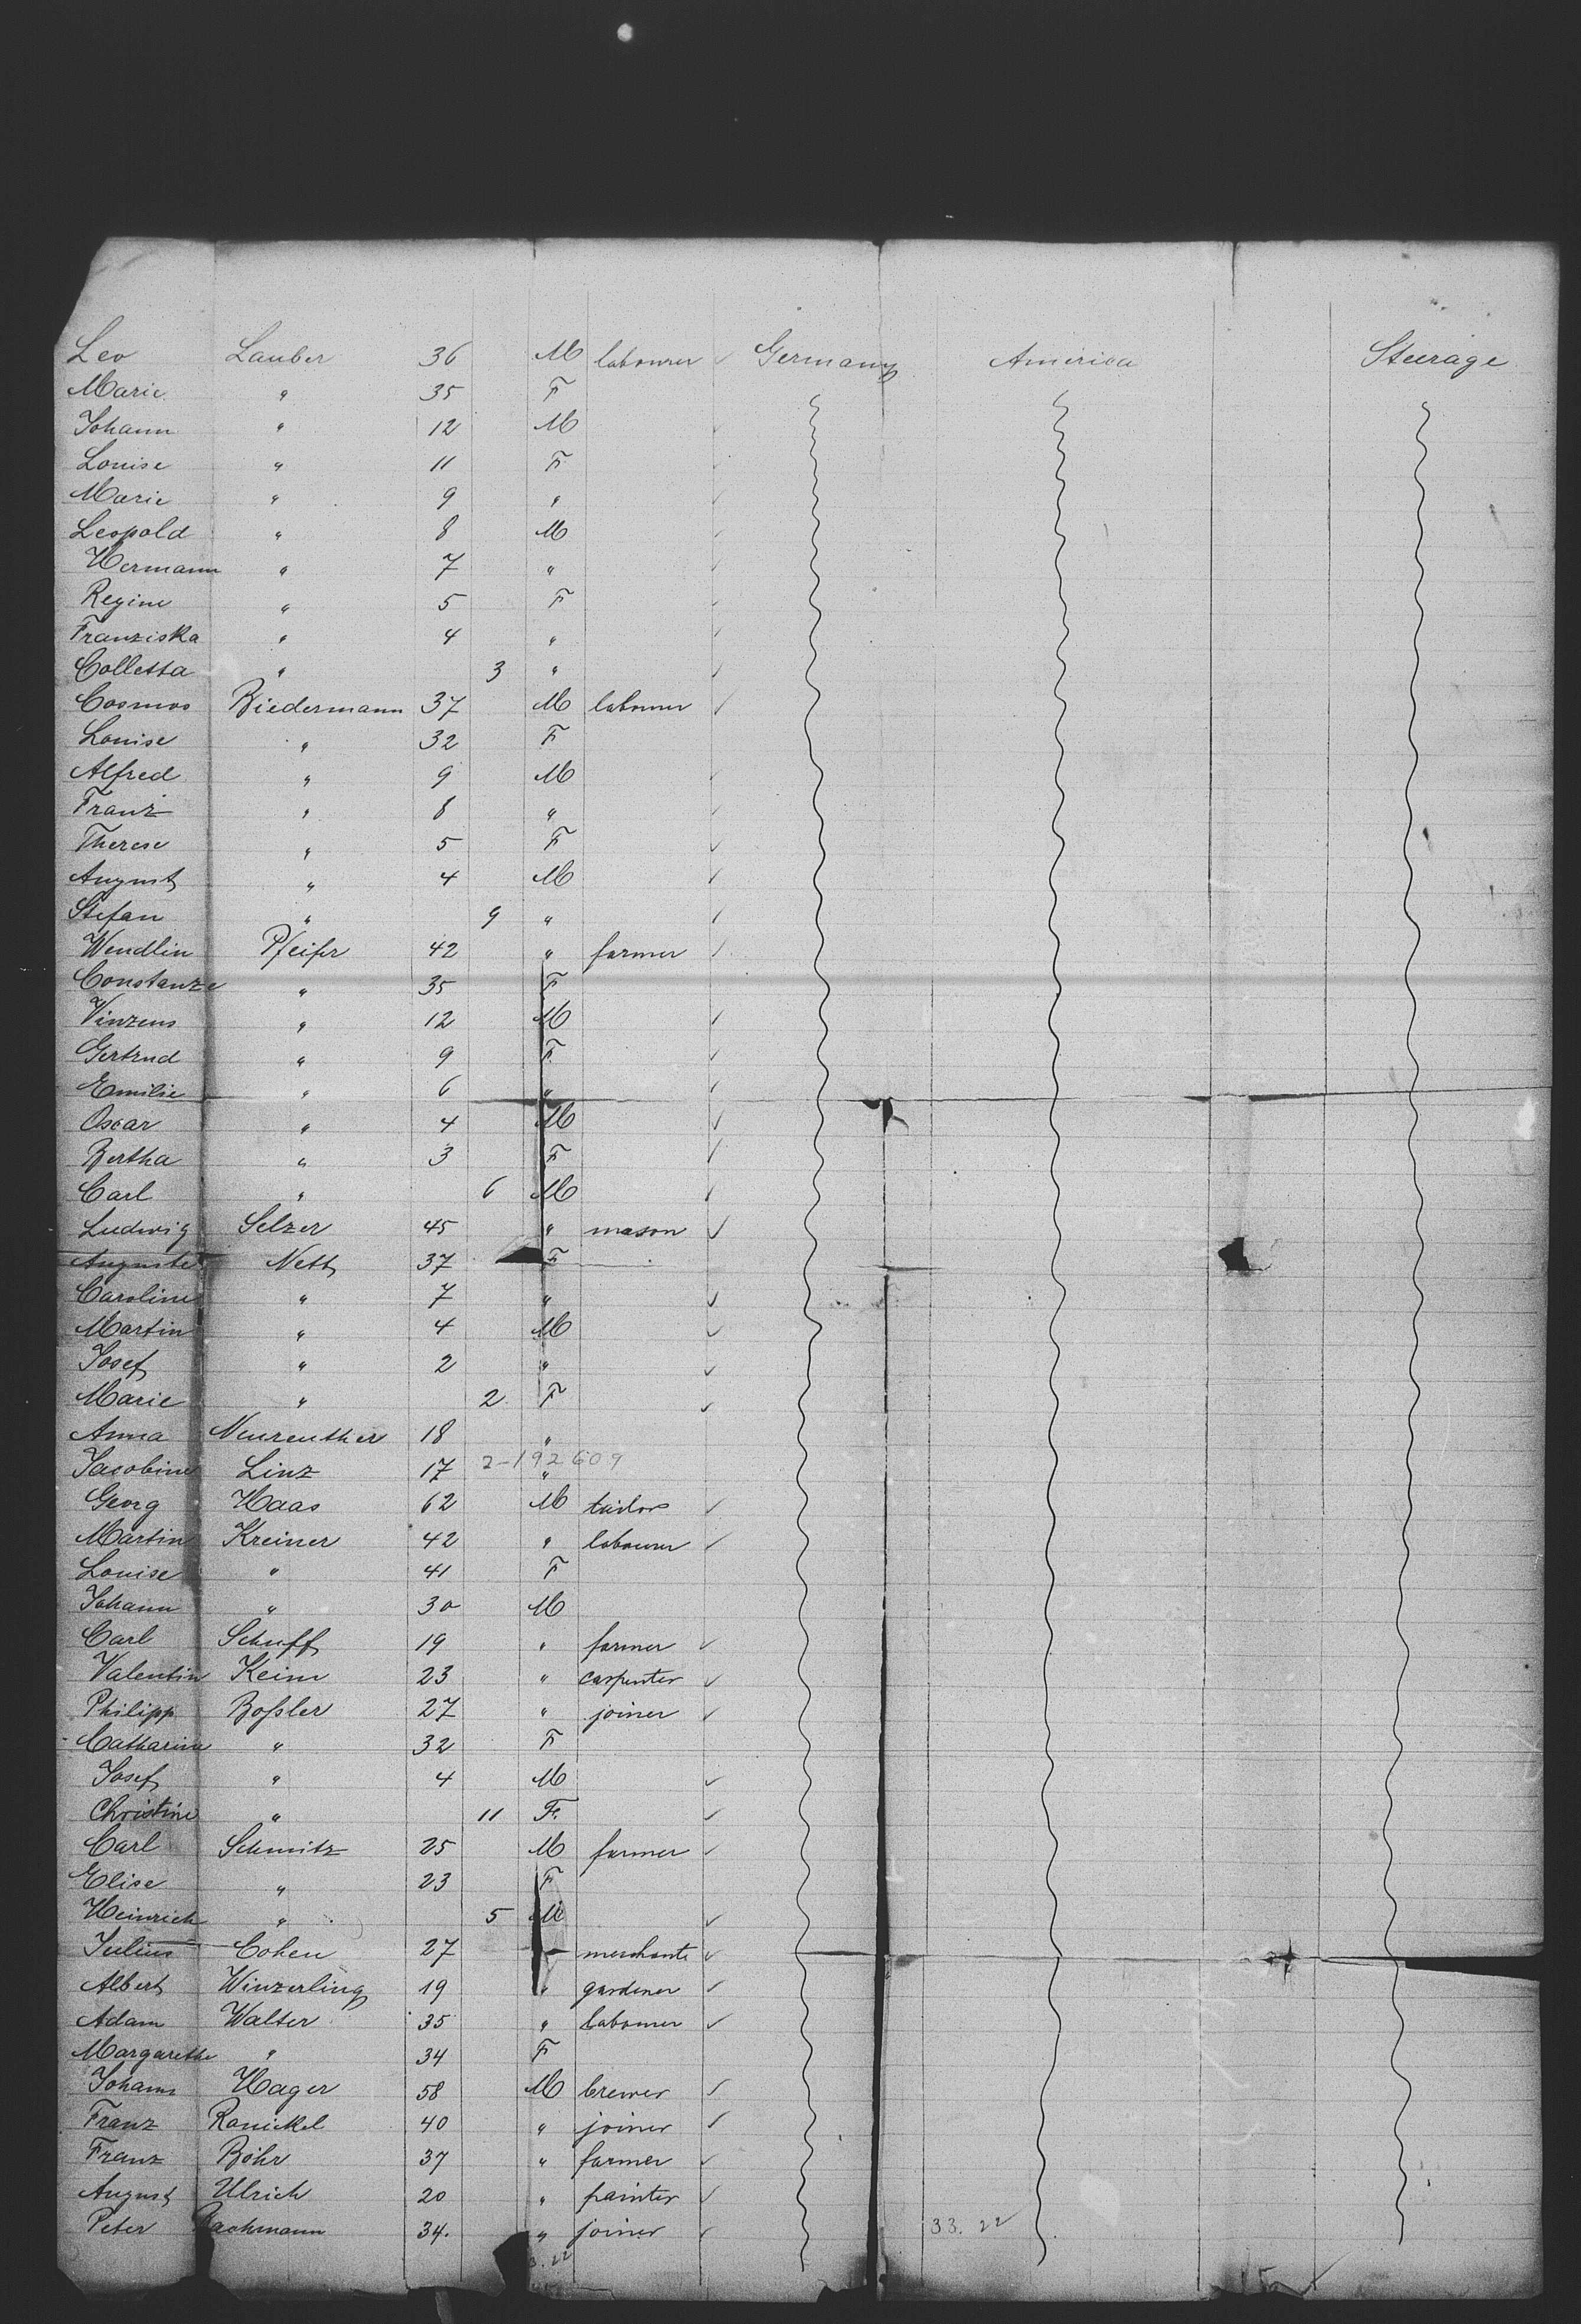 Leo Lauber 36 M labourer ✓ Germany America Steerage
Marie " 35 F
Johann " 12 M
Louise " 11 F
Marie " 9 "
Leopold " 8 M
Hermann " 7 "
Regine " 5 F
Franziska " 4 "
Colletta " 3 "
Cosmos Biedermann 37 M labourer ✓
Louise " 32 F
Alfred " 9 M
Franz " 8 "
Therese " 5 F ✓
August " 4 M ✓
Stefan " 9 " ✓
Wendlin Pfeifer 42 " farmer ✓
Constanze " 35 F
Vinzens " 12 M ✓
Gertrud " 9 F ✓
Emilie " 6 " ✓
Oscar " 4 M ✓
Bertha " 3 F ✓
Carl " 6 M ✓
Ludwig Selzer 45 " mason ✓
Auguste Nett 37 F
Caroline " 7 " ✓
Martin " 4 M ✓
Josef " 2 " ✓
Marie " 2 F ✓
Anna Neureuther 18 "
Jacobine Linz 17 " 2-192609
Georg Haas 62 M tailor ✓
Martin Kreiner 42 " labourer ✓
Louise " 41 F
Johann " 30 M
Carl Schuff 19 " farmer ✓
Valentin Keim 23 " carpenter ✓
Philipp Boßler 27 " joiner ✓
Catharine " 32 F
Josef " 4 M ✓
Christine " 11 F. ✓
Carl Schmitz 25 M farmer ✓
Elise " 23 F
Heinrich " 5 M ✓
Julius Cohen 27 merchant ✓
Albert Winzerling 19 " gardener ✓
Adam Walter 35 " labourer ✓
Margarethe " 34 F
Johann Hager 58 M brewer ✓
Franz Ranickel 40 " joiner ✓
Franz Böhr 37 " farmer ✓
August Ulrich 20 " painter ✓
Peter Bachmann 34. " joiner ✓ 33.22
3.22